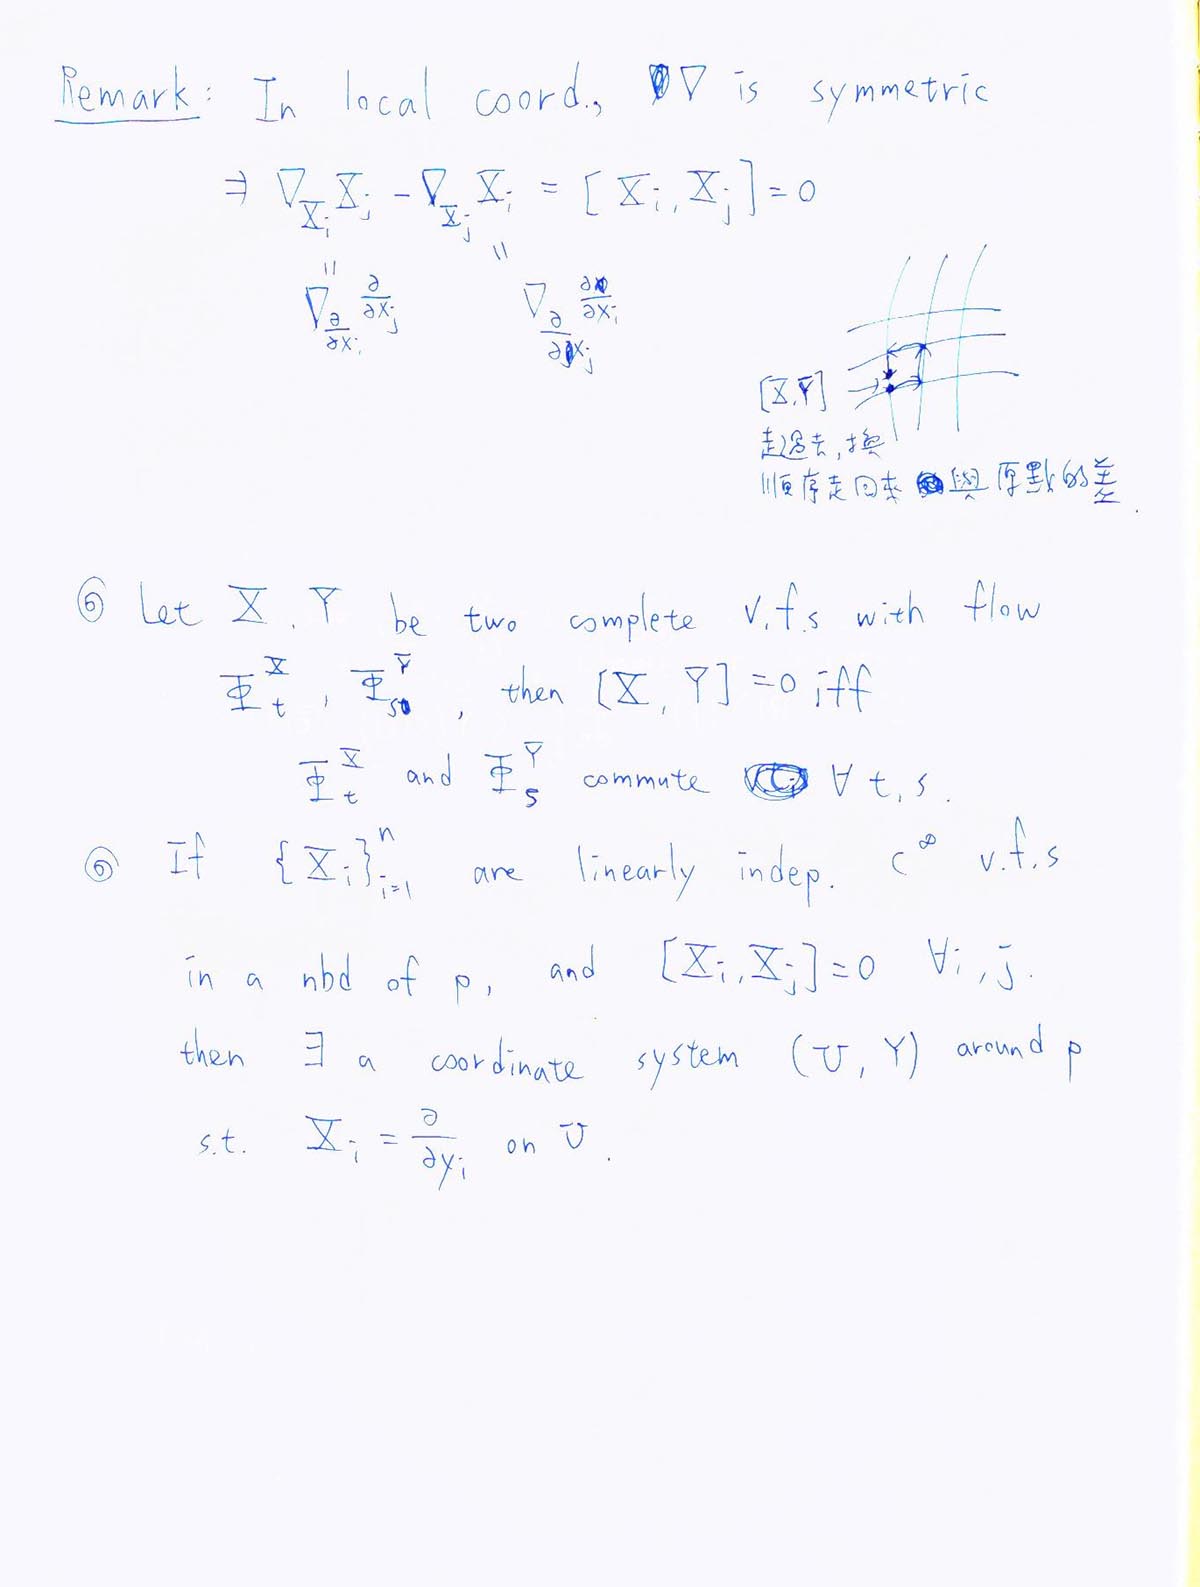 Remark: In local coord., ∇ is symmetric
⇒ ∇_{X_i} X_j − ∇_{X_j} X_i = [X_i, X_j] = 0
∇_{∂/∂x_i} ∂/∂x_j   ∇_{∂/∂x_j} ∂/∂x_i
[X,Y]
走過去,換
順序走回來 與原點的差.
⑥ Let X, Y be two complete v.f.s with flow
Φ_t^X, Φ_s^Y, then [X, Y] = 0 iff
Φ_t^X and Φ_s^Y commute ∀ t, s.
⑥ If {X_i}_{i=1}^n are linearly indep. C^∞ v.f.s
in a nbd of p, and [X_i, X_j] = 0 ∀i, j.
then ∃ a coordinate system (U, Y) around p
s.t. X_i = ∂/∂y_i on U.